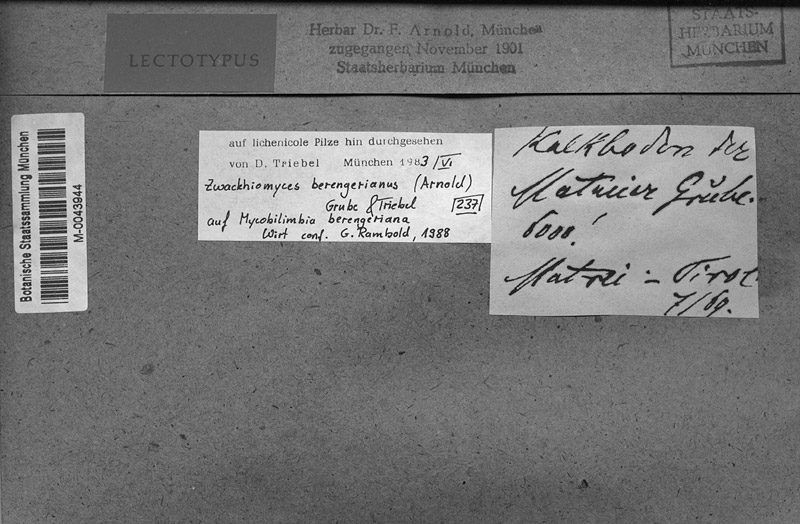 LECTOTYPUS
Herbar Dr. F. Arnold, München
zugegangen November 1901
Staatsherbarium München
STAATS-
HERBARIUM
MÜNCHEN
Botanische Staatssammlung München
M-0043944
auf lichenicole Pilze hin durchgesehen
von D. Triebel München 1983/VI
Zwackhiomyces berengerianus (Arnold)
Grube & Triebel 237
auf Mycobilimbia berengeriana
Wirt conf. G. Rambold, 1988
Kalkboden der
Matreier Grube.
6000!
Matrei - Tirol
7/69.